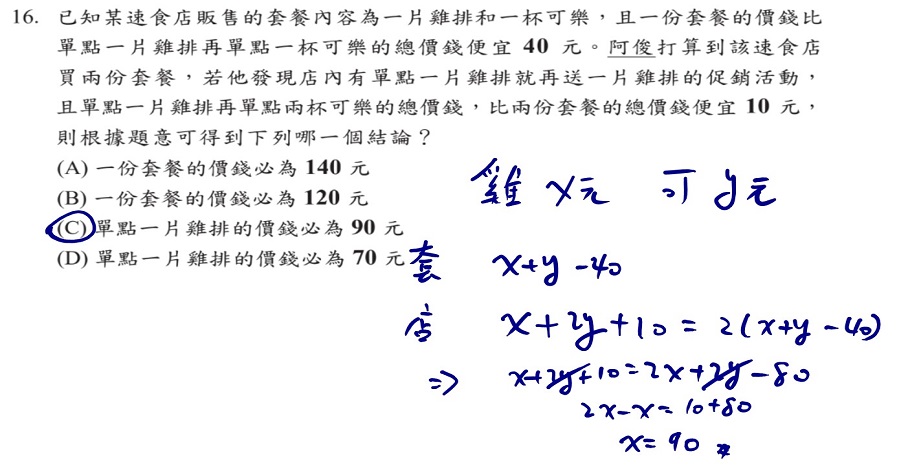 16. 已知某速食店販售的套餐內容為一片雞排和一杯可樂，且一份套餐的價錢比
單點一片雞排再單點一杯可樂的總價錢便宜 40 元。阿俊打算到該速食店
買兩份套餐，若他發現店內有單點一片雞排就再送一片雞排的促銷活動，
且單點一片雞排再單點兩杯可樂的總價錢，比兩份套餐的總價錢便宜 10 元，
則根據題意可得到下列哪一個結論？
(A) 一份套餐的價錢必為 140 元
(B) 一份套餐的價錢必為 120 元
(C) 單點一片雞排的價錢必為 90 元
(D) 單點一片雞排的價錢必為 70 元
雞 x元 可 y元
套 x+y-40
店 x+2y+10=2(x+y-40)
⇒ x+2y+10=2x+2y-80
2x-x=10+80
x=90